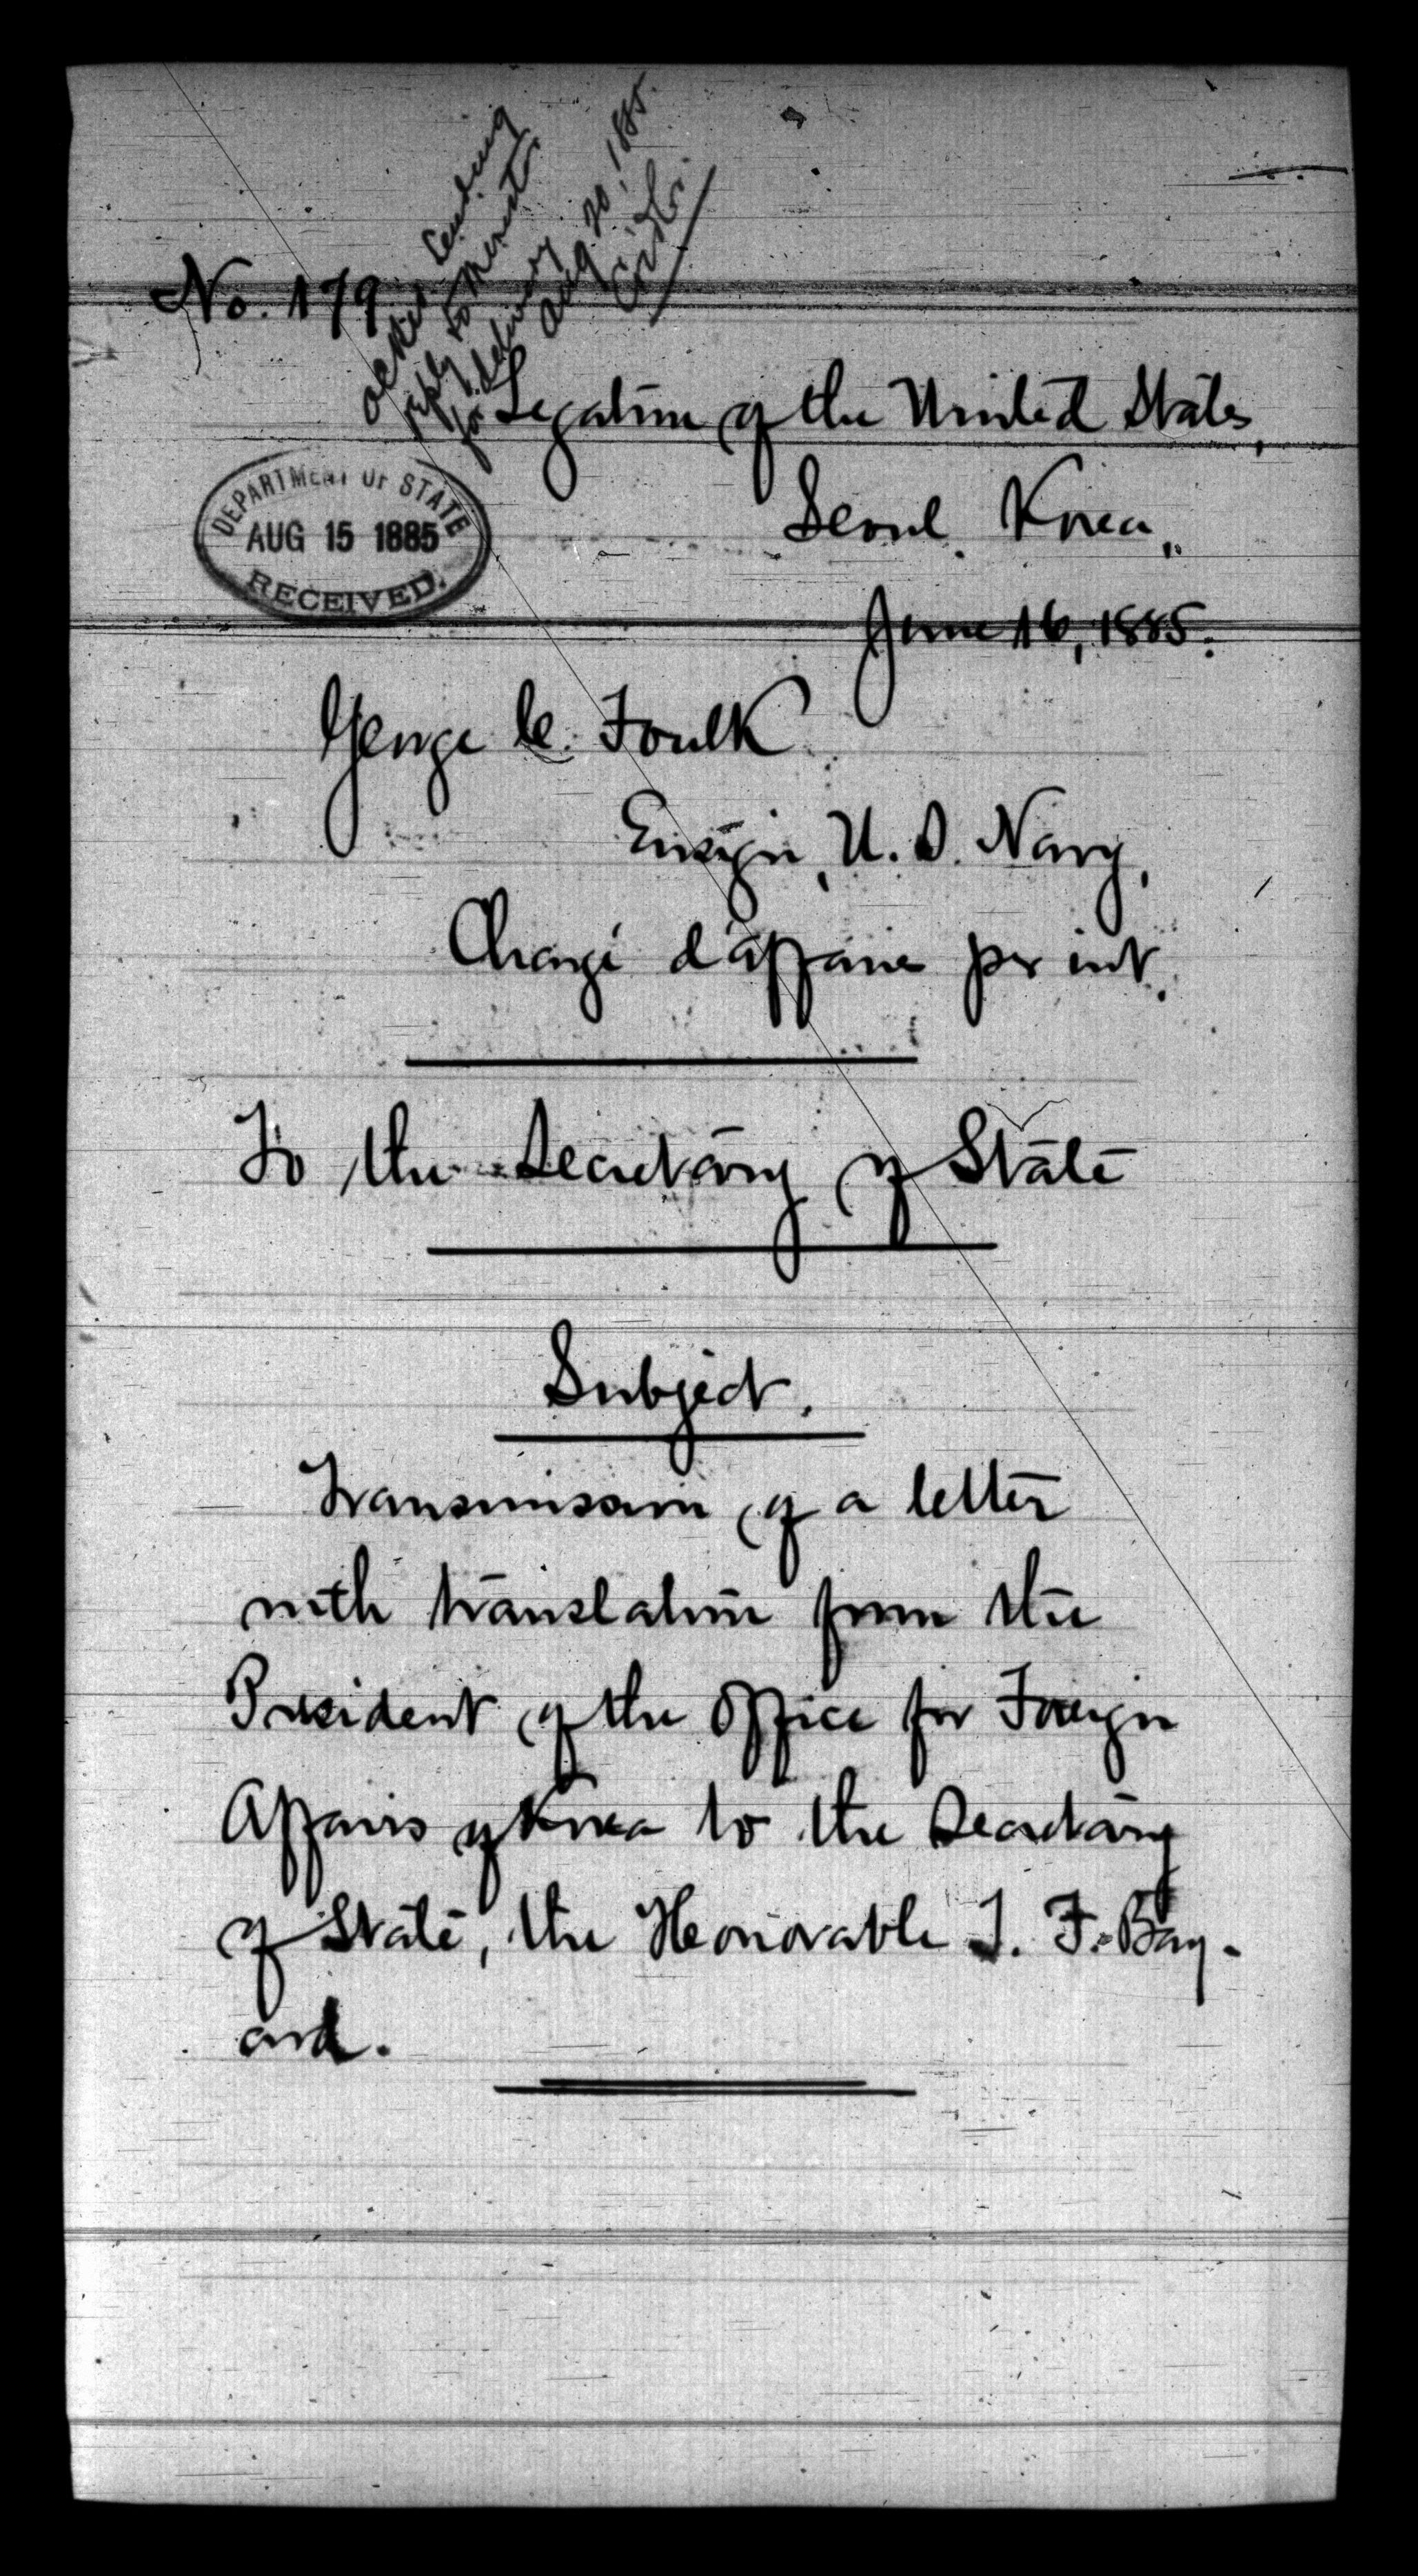 No. 179
ack'd sending
reply to
for delivery
Aug 20, 1885.
Legation of the United States,
Seoul, Korea,
DEPARTMENT OF STATE
AUG 15 1885
RECEIVED.
June 16, 1885.
George C. Foulk
Ensign, U. S. Navy,
Chargé d'affaires per int.
To the Secretary of State
Subject.
Transmission of a letter
with translation from the
President of the Office for Foreign
Affairs of Korea to the Secretary
of State, the Honorable T. F. Bay-
ard.